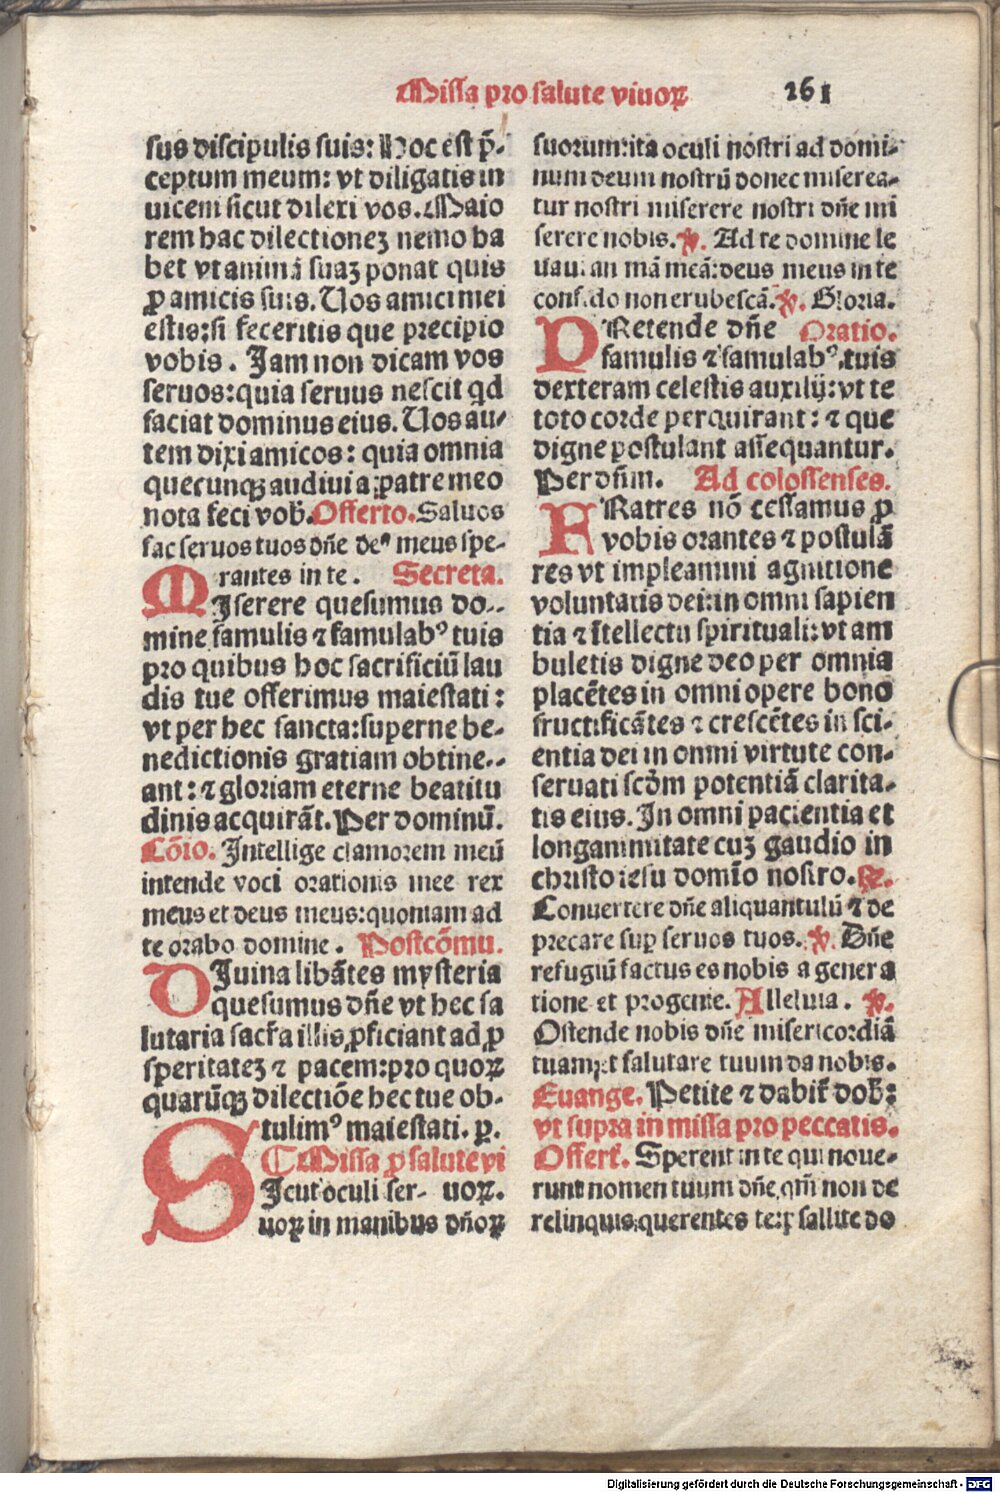 Missa pro salute viuoꝝ 261
sus discipulis suis: Hoc est p̄-
ceptum meum: vt diligatis in
uicem sicut dilexi vos. Maio
rem hac dilectionez nemo ha
bet vt animā suaz ponat quis
ꝓ amicis suis. Uos amici mei
estis: si feceritis que precipio
vobis. Jam non dicam vos
seruos: quia seruus nescit qd
faciat dominus eius. Uos au-
tem dixi amicos: quia omnia
quecunqꝫ audiui a patre meo
nota feci vob̄. Offerto. Saluos
fac seruos tuos dn̄e deꝰ meus spe-
rantes in te. Secreta.
MJserere quesumus do-
mine famulis ⁊ famulabꝰ tuis
pro quibus hoc sacrificiū lau
dis tue offerimus maiestati:
vt per hec sancta: superne be-
nedictionis gratiam obtine-
ant: ⁊ gloriam eterne beatitu
dinis acquirāt. Per dominū.
Cōio. Jntellige clamorem meū
intende voci orationis mee rex
meus et deus meus: quoniam ad
te orabo domine. Postcōmu.
DJuina libātes mysteria
quesumus dn̄e vt hec sa
lutaria sacr̄a illis ꝓficiant ad ꝓ
speritatez ⁊ pacem: pro quoꝝ
quarūqꝫ dilectiōe hec tue ob-
tulimꝰ maiestati. p.
¶ Missa ꝓ salute vi
uoꝝ.
SJcut oculi ser-
uoꝝ in manibus dn̄oꝝ
suorum: ita oculi nostri ad domi-
num deum nostrū donec miserea-
tur nostri miserere nostri dn̄e mi
serere nobis. ℣. Ad te domine le
uaui animā meā: deus meus in te
confido non erubescā. ℣. Gloria.
PRetende dn̄e Oratio.
famulis ⁊ famulabꝰ tuis
dexteram celestis auxilij: vt te
toto corde perquirant: ⁊ que
digne postulant assequantur.
Per dn̄m. Ad colossenses.
FRatres nō cessamus ꝓ
vobis orantes ⁊ postulā
res vt impleamini agnitione
voluntatis dei: in omni sapien
tia ⁊ ītellectu spirituali: vt am
buletis digne deo per omnia
placētes in omni opere bono
fructificātes ⁊ crescētes in sci-
entia dei in omni virtute con-
seruati scd̄m potentiā clarita-
tis eius. Jn omni pacientia et
longanimitate cuz gaudio in
christo iesu domīo nostro. ℟.
Conuertere dn̄e aliquantulū ⁊ de
precare sup seruos tuos. ℣. Dn̄e
refugiū factus es nobis a genera
tione et progenie. Alleluia. ℣.
Ostende nobis dn̄e misericordiā
tuam: et salutare tuum da nobis.
Euange. Petite ⁊ dabit̄ vob̄:
vt supra in missa pro peccatis.
Offert̄. Sperent in te qui noue-
runt nomen tuum dn̄e, qm̄ non de
relinquis querentes te: psallite do
Digitalisierung gefördert durch die Deutsche Forschungsgemeinschaft - DFG